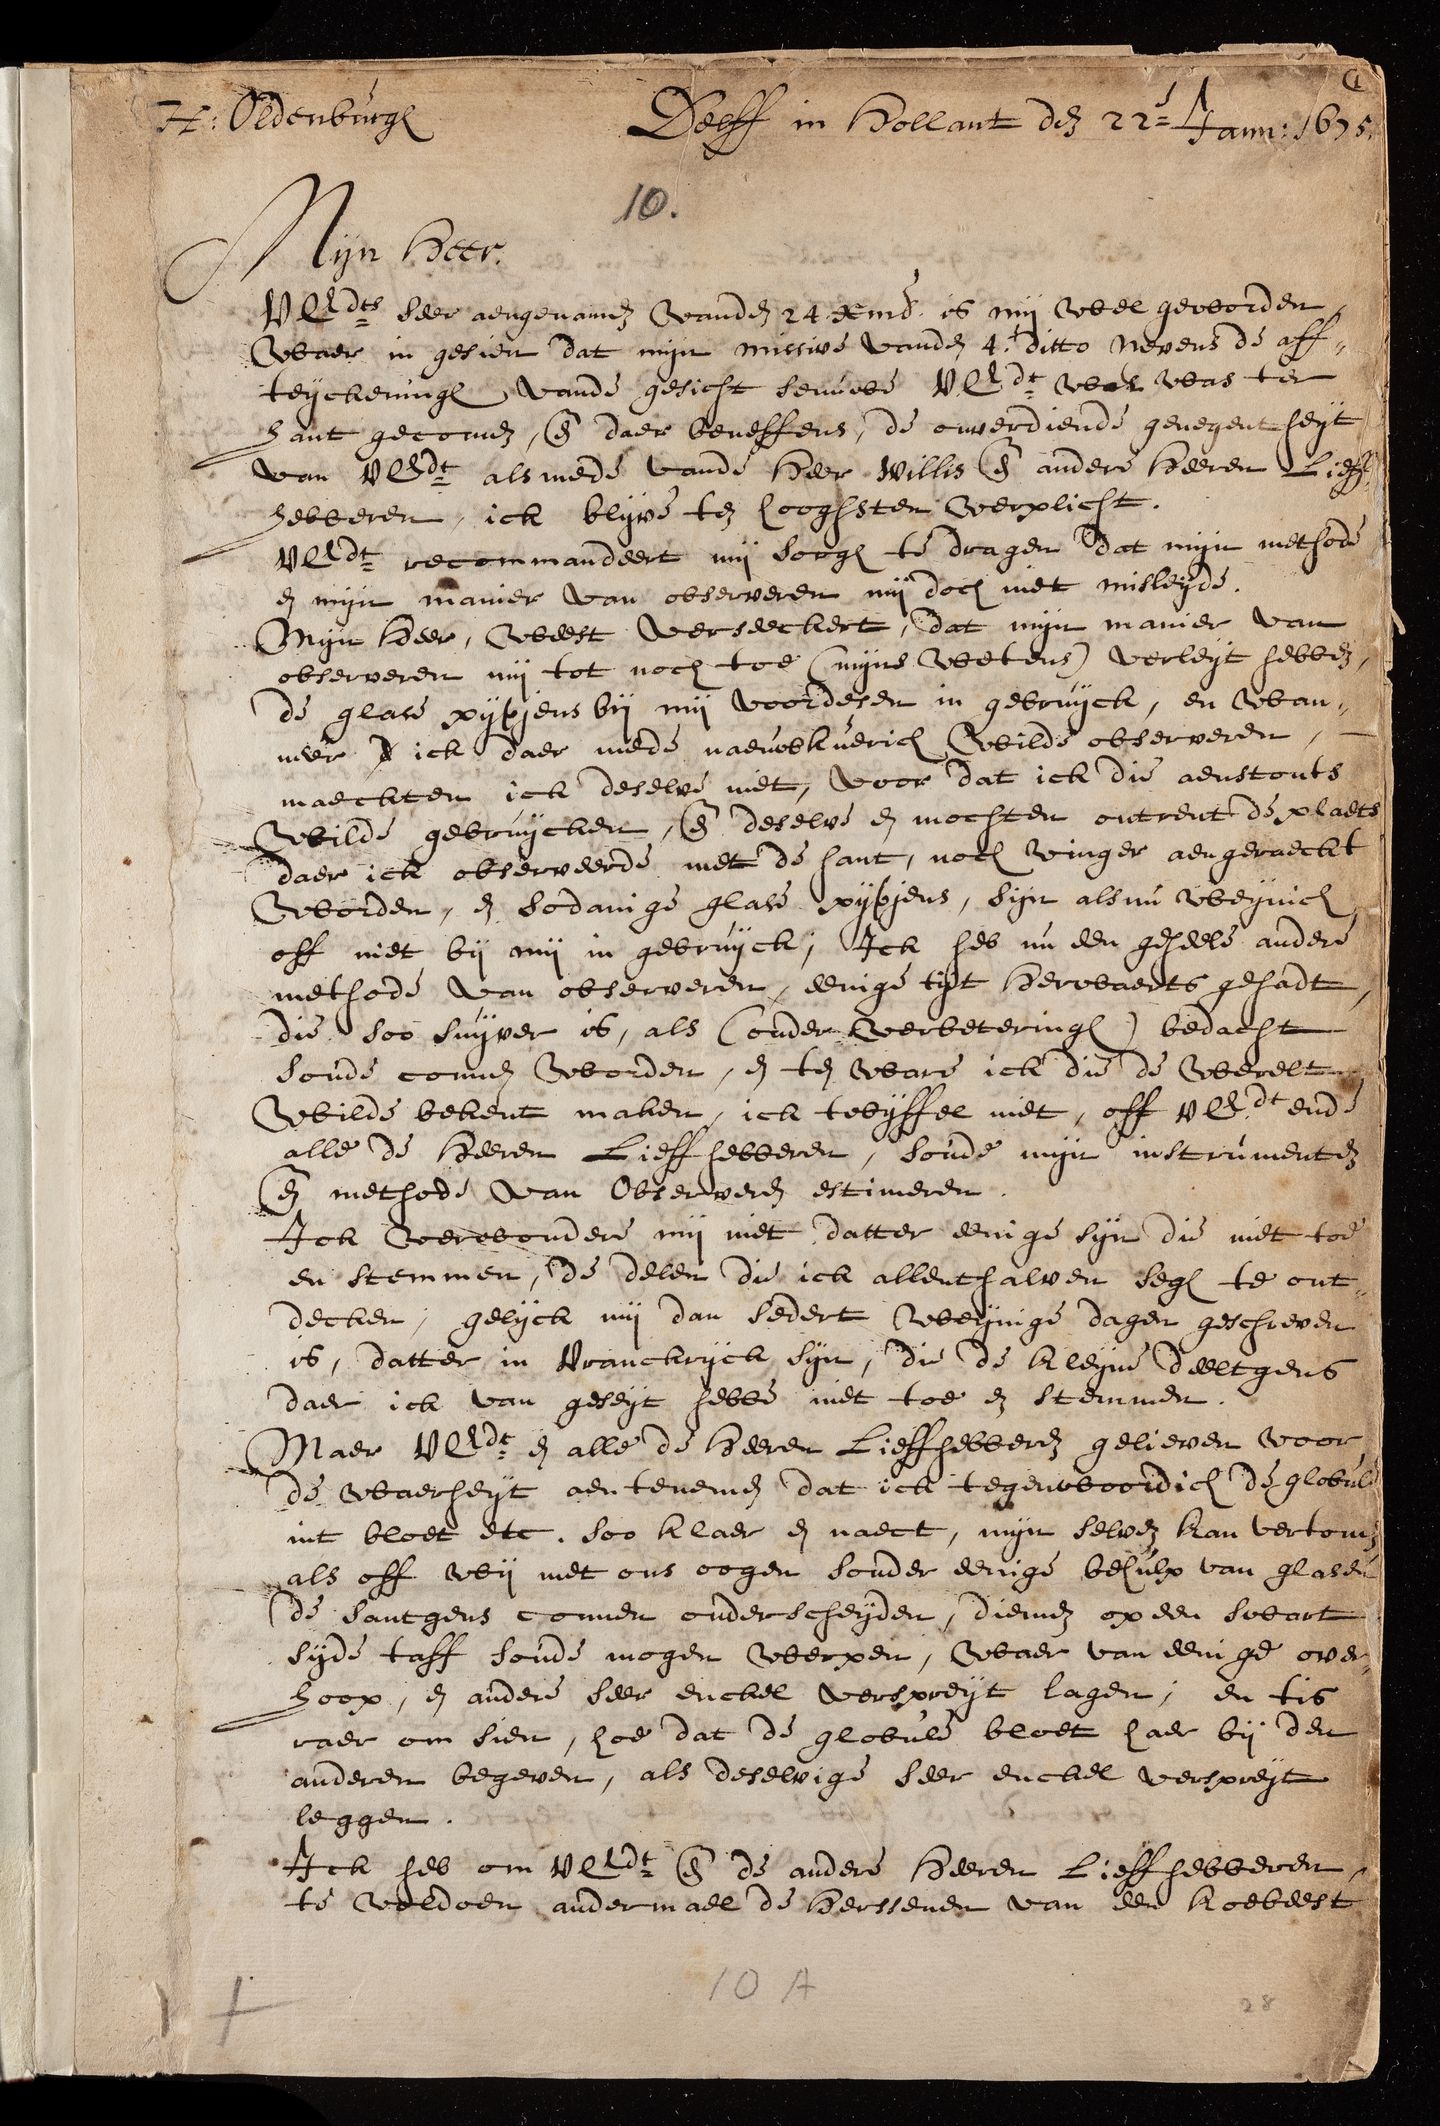 H: Oldenburgh
Delff in Hollant den 22e Janu: 1675.
10.
Mijn Heer.
VEEdts seer aengenamen vanden 24. Xmb. is mij wel geworden,
waer in gesien dat mijn missive vanden 4. ditto nevens de aff-
teyckeningh vande gesicht senuwe VEEdt was ter
hant gecomen, en daer beneffens, de onverdiende genegentheyt
van VEEdt als mede vande Heer Willis en andere Heeren Lieff-
hebberen, ick blijve ten hooghsten verplicht.
VEEdt recommandeert mij sorgh te dragen dat mijn methode
en mijn manier van observeren mij doch niet misleyde.
Mijn Heer, weest verseeckert, dat mijn manier van
observeren mij tot noch toe (mijns wetens) verleyt hebben,
de glase pypjens bij mij voordesen in gebruyck, en wan-
neer ick daer mede naeuwkuerich wilde observeren,
maeckten ick deselve niet, voor dat ick die aenstonts
wilde gebruycken, en deselve en mochten ontrent de plaets
daer ick observeerde met de hant, noch vinger aengeraeckt
worden, en sodanige glase pypjens, sijn alsnu weynich
off niet bij mij in gebruyck; Ick heb nu een geheele andere
methode van observeren, eenige tijt herwaerts gehadt,
die soo suyver is, als (onder verbeteringh) bedacht
soude connen worden, en ten ware ick die de werelt
wilde bekent maken, ick twyffel niet, off VEEdt ende
alle de Heeren Lieffhebberen, soude mijn instrumenten
en methode van Observeren estimeren.
Ick verwondere mij niet datter eenige sijn die niet toe
en stemmen, de delen die ick allenthalven segh te ont-
decken, gelyck mij dan sedert weynige dagen geschreven
is, datter in Vranckryck sijn, die de kleyne deeltgens
daer ick van geseyt hebbe niet toe en stemmen.
Maer VEEdt en alle de Heeren Lieffhebberen gelieven voor
de waerheyt aen te nemen dat ick tegenwoordich de globule
int bloet etc. soo klaer en naect, mijn selven kan vertonen
als off wij met ons oogen sonder eenige behulp van glasen
de santgens connen onderscheyden, diemen op een swart
syde taff soude mogen werpen, waer van eenige over
hoop, en andere seer enckel verspreyt lagen; en tis
raer om sien, hoe dat de globule bloet haer bij den
anderen begeven, als deselvige seer enckel verspreyt
leggen.
Ick heb om VEEdt en de andere Heeren Lieffhebberen,
te voldoen andermael de Herssenen van een koebeest
10 A
28